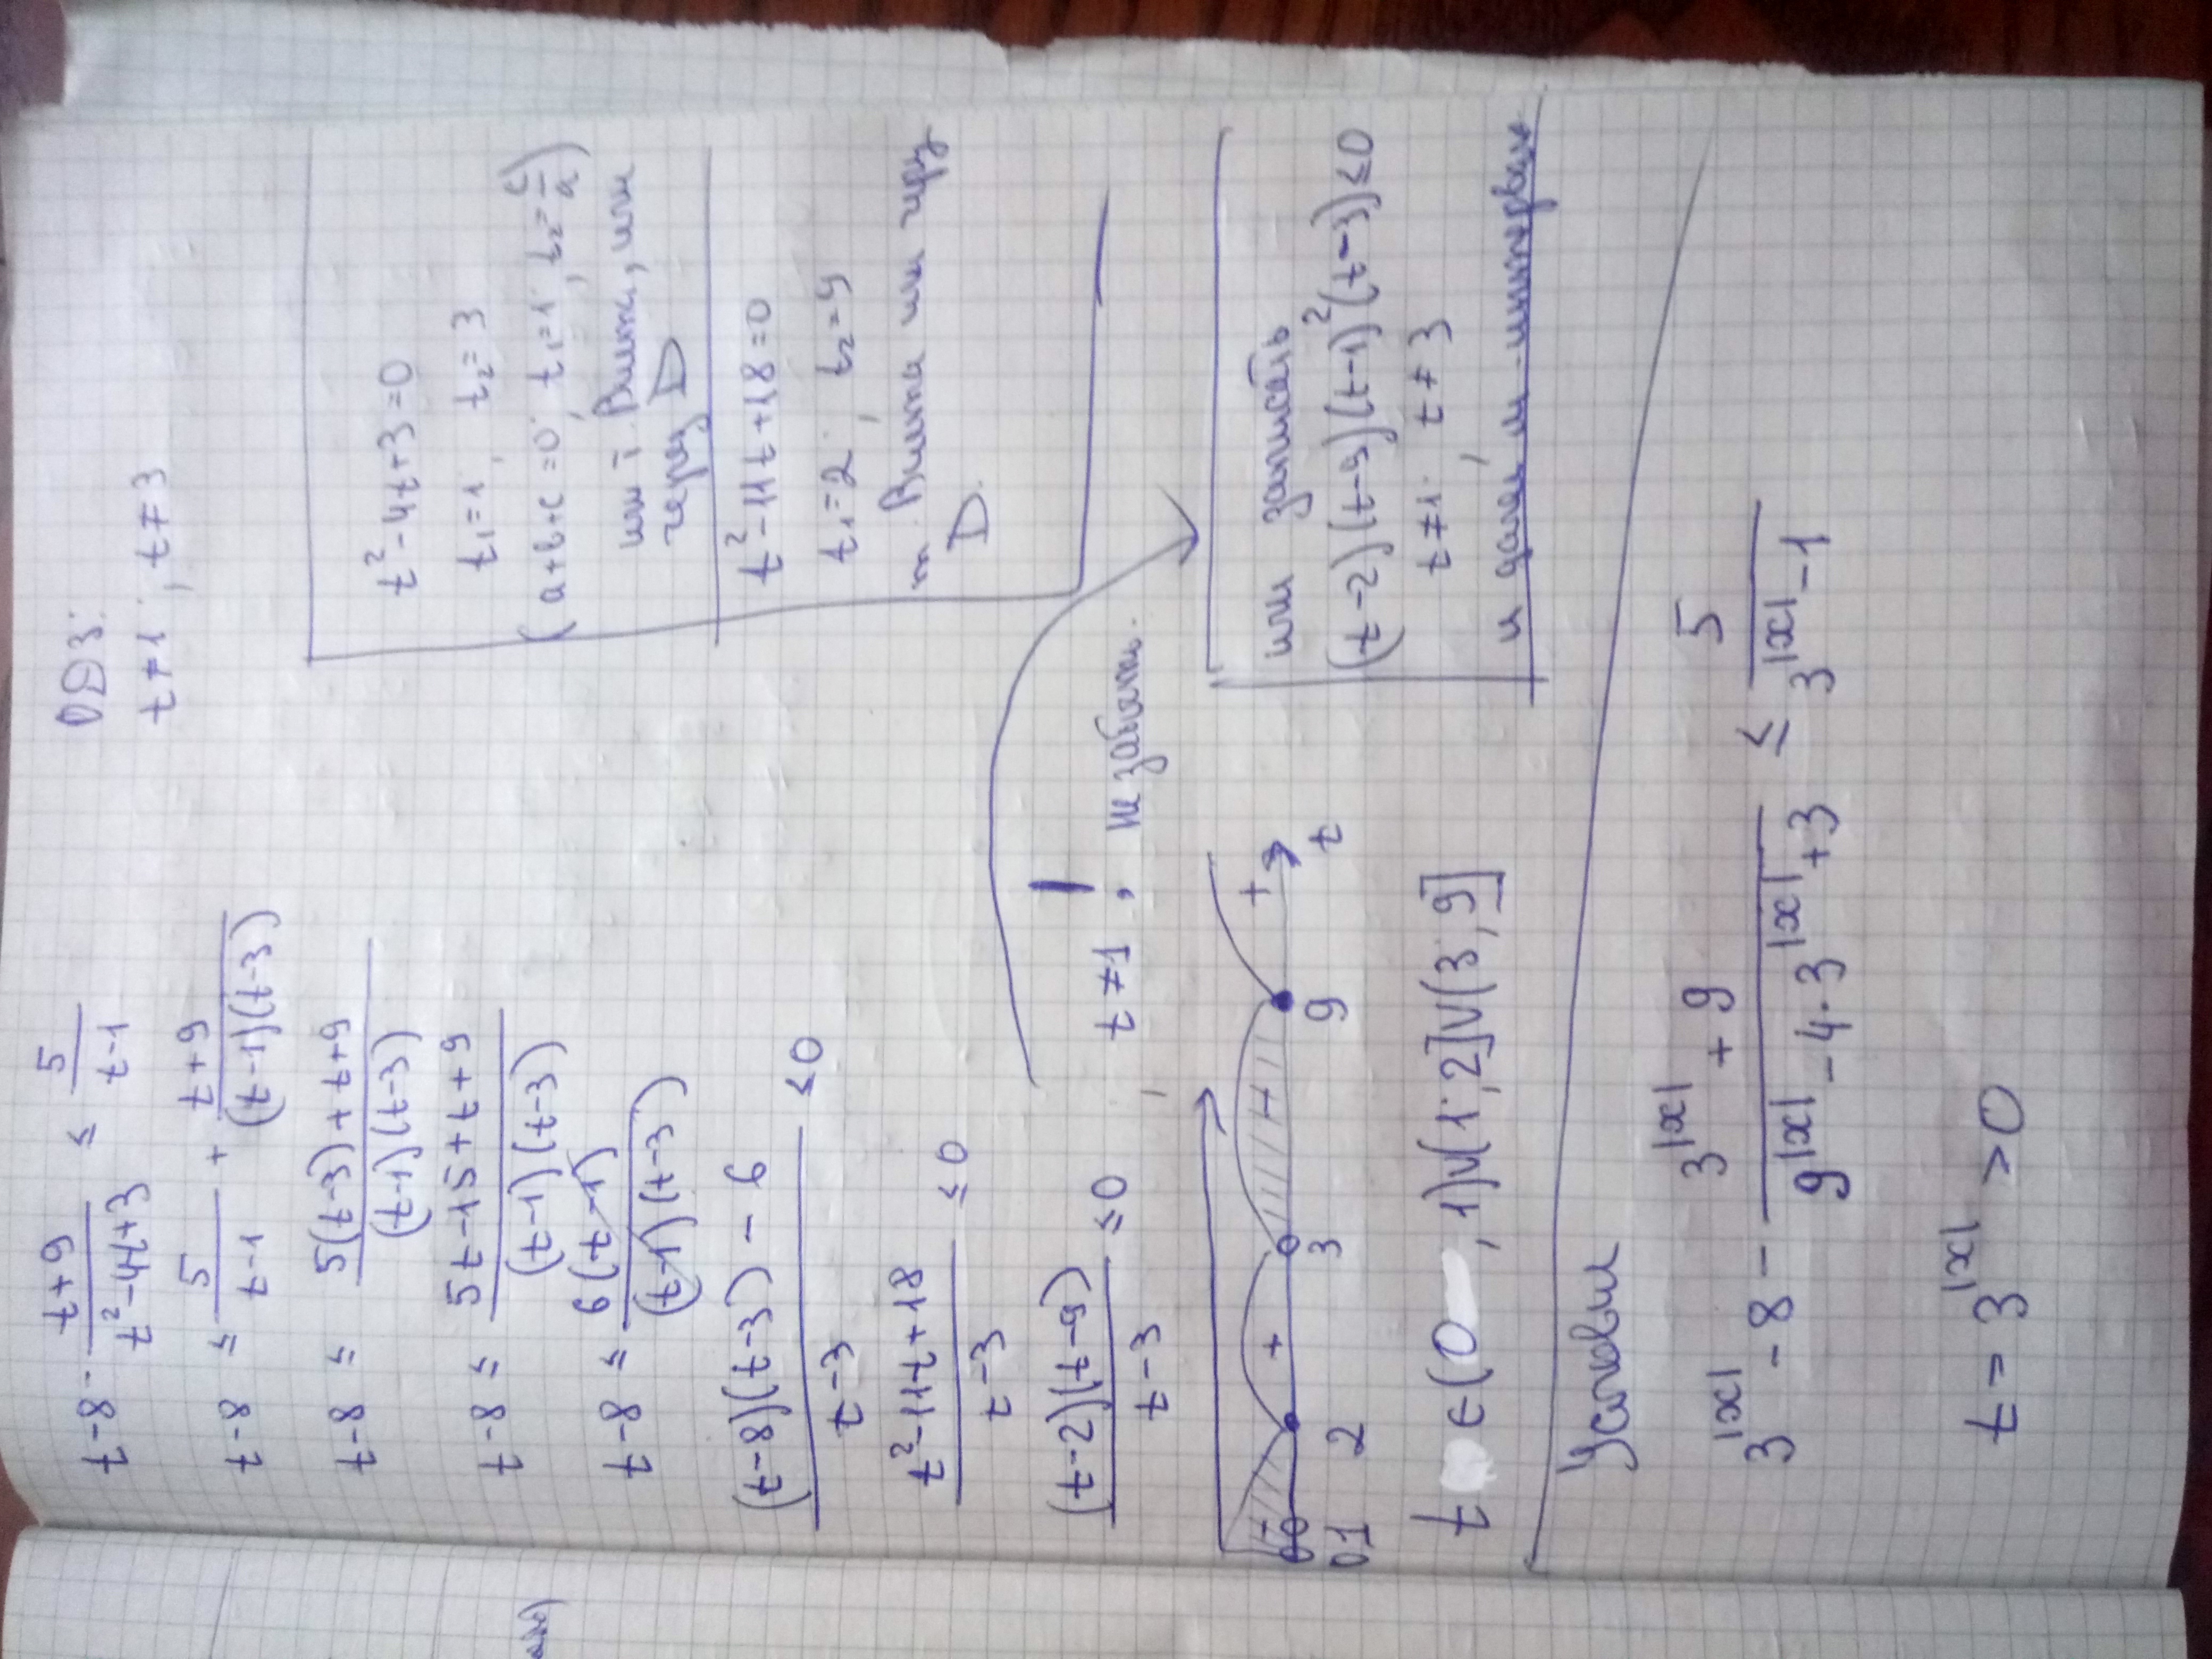 t-8 - (t+9)/(t²-4t+3) ≤ 5/(t-1)
ОДЗ:
t≠1; t≠3
t-8 ≤ 5/(t-1) + (t+9)/((t-1)(t-3))
t-8 ≤ (5(t-3)+t+9)/((t-1)(t-3))
t-8 ≤ (5t-15+t+9)/((t-1)(t-3))
t-8 ≤ 6(t-1)/((t-1)(t-3))
((t-8)(t-3) - 6)/(t-3) ≤ 0
(t²-11t+18)/(t-3) ≤ 0
(t-2)(t-9)/(t-3) ≤ 0
t²-4t+3=0
t₁=1; t₂=3
(a+b+c=0; t₁=1; t₂=c/a)
или т. Виета, или
через D
t²-11t+18=0
t₁=2; t₂=9
т. Виета или через
D.
t≠1, не забыть.
+ - +
0 1 2 3 9 t
t ∈ (0, 1)∪(1; 2]∪(3; 9]
или записать
(t-2)(t-9)(t-1)²(t-3)≤0
t≠1; t≠3
и далее м. интервалов
Условие
3^|x| - 8 - (3^|x| + 9)/(9^|x| - 4·3^|x| + 3) ≤ 5/(3^|x| - 1)
t = 3^|x| > 0